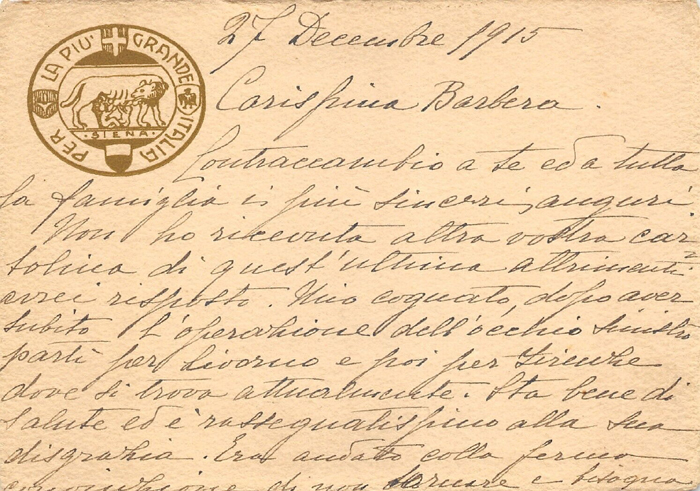 PER LA PIÙ GRANDE ITALIA
SIENA
27 Decembre 1915
Carissima Barbera.
Contraccambio a te ed a tutta
la famiglia i più sinceri auguri.
Non ho ricevuta altra vostra car=
tolina di quest'ultima altrimenti
avrei risposto. Mio cognato, dopo aver
subito l'operazione dell'occhio sinistro
partì per Livorno e poi per Firenze
dove si trova attualmente. Sta bene di
salute ed è rassegnatissimo alla sua
disgrazia. Era andato colla ferma
convinzione di non tornare e bisogna